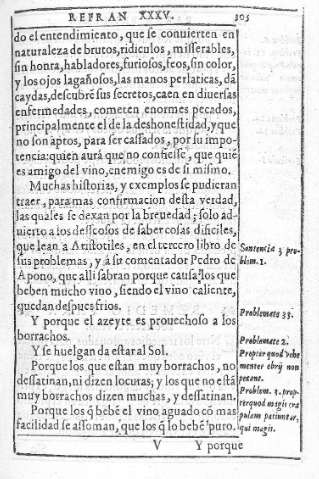 REFRAN XXXV. 305
do el entendimiento, que se conuierten en
naturaleza de brutos, ridiculos, misserables,
sin honra, habladores, furiosos, feos, sin color,
y los ojos lagañosos, las manos perlaticas, dã
caydas, descubrẽ sus secretos, caen en diuersas
enfermedades, cometen enormes pecados,
principalmente el de la deshonestidad, y que
no son aptos, para ser cassados, por su impo-
tencia: quien aurá que no confiesse, que quiẽ
es amigo del vino, enemigo es de si mismo.
Muchas historias, y exemplos se pudieran
traer, para mas confirmacion desta verdad,
las quales se dexan por la breuedad; solo ad-
uierto a los desseosos de saber cosas dificiles,
que lean a Aristotiles, en el tercero libro de
sus problemas, y à su comentador Pedro de
Apono, que alli sabran porque causa, los que
beben mucho vino, siendo el vino caliente,
quedan despues frios.
Y porque el azeyte es prouechoso a los
borrachos.
Y se huelgan da estar al Sol.
Porque los que estan muy borrachos, no
dessatinan, ni dizen locuras; y los que no estã
muy borrachos dizen muchas, y dessatinan.
Porque los q̃ bebẽ el vino aguado cõ mas
facilidad se assoman, que los q̃ lo bebẽ puro.
V Y porque
Sentencia 3 pro-
blim. 1.
Problemata 33.
Problemate 2.
Propter quod vehe
menter ebrij non
Problem. 3. prop-
terquod magis cra
pulam patiuntur,
qui magis.